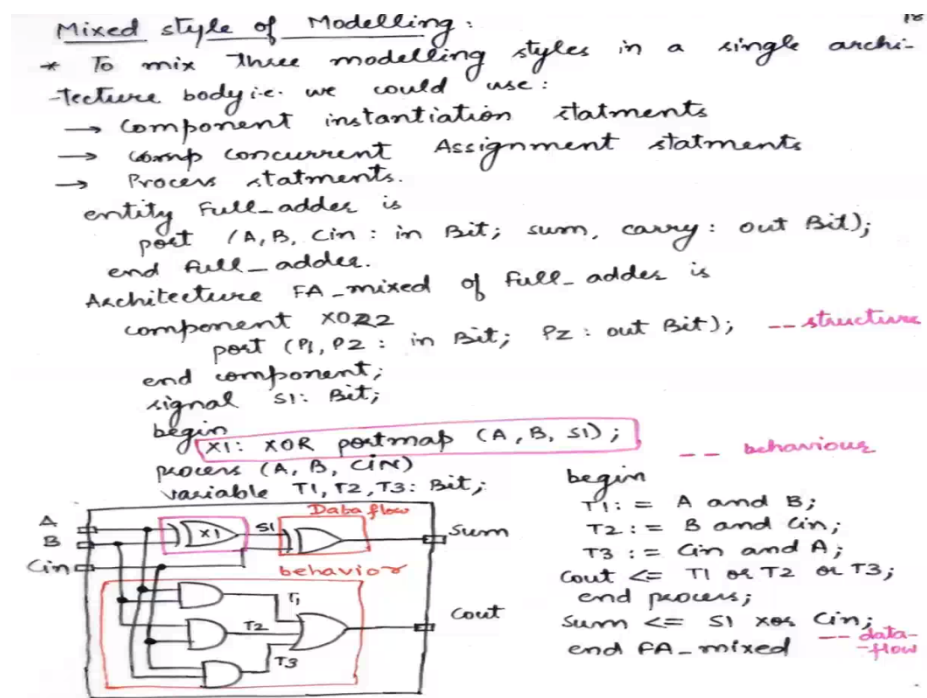 18
Mixed style of Modelling:
* To mix three modelling styles in a single archi-
-tecture body i.e. we could use:
→ Component instantiation statments
→ comp concurrent Assignment statments
→ Process statments.
entity Full_adder is
port (A, B, Cin : in Bit; sum, carry : out Bit);
end full_adder.
Architecture FA_mixed of Full_adder is
component XOR2
port (P1, P2 : in Bit; PZ : out Bit); -- structure
end component;
signal S1: Bit;
begin
X1: XOR portmap (A, B, S1);
-- behaviour
process (A, B, CiN)
variable T1, T2, T3: Bit;
begin
T1: = A and B;
T2: = B and Cin;
T3 := Cin and A;
Cout <= T1 or T2 or T3;
end process;
sum <= S1 xor Cin;
-- data-
-flow
end FA_mixed
A
B
Cin
X1
S1
Data flow
Sum
behavior
T1
T2
T3
Cout